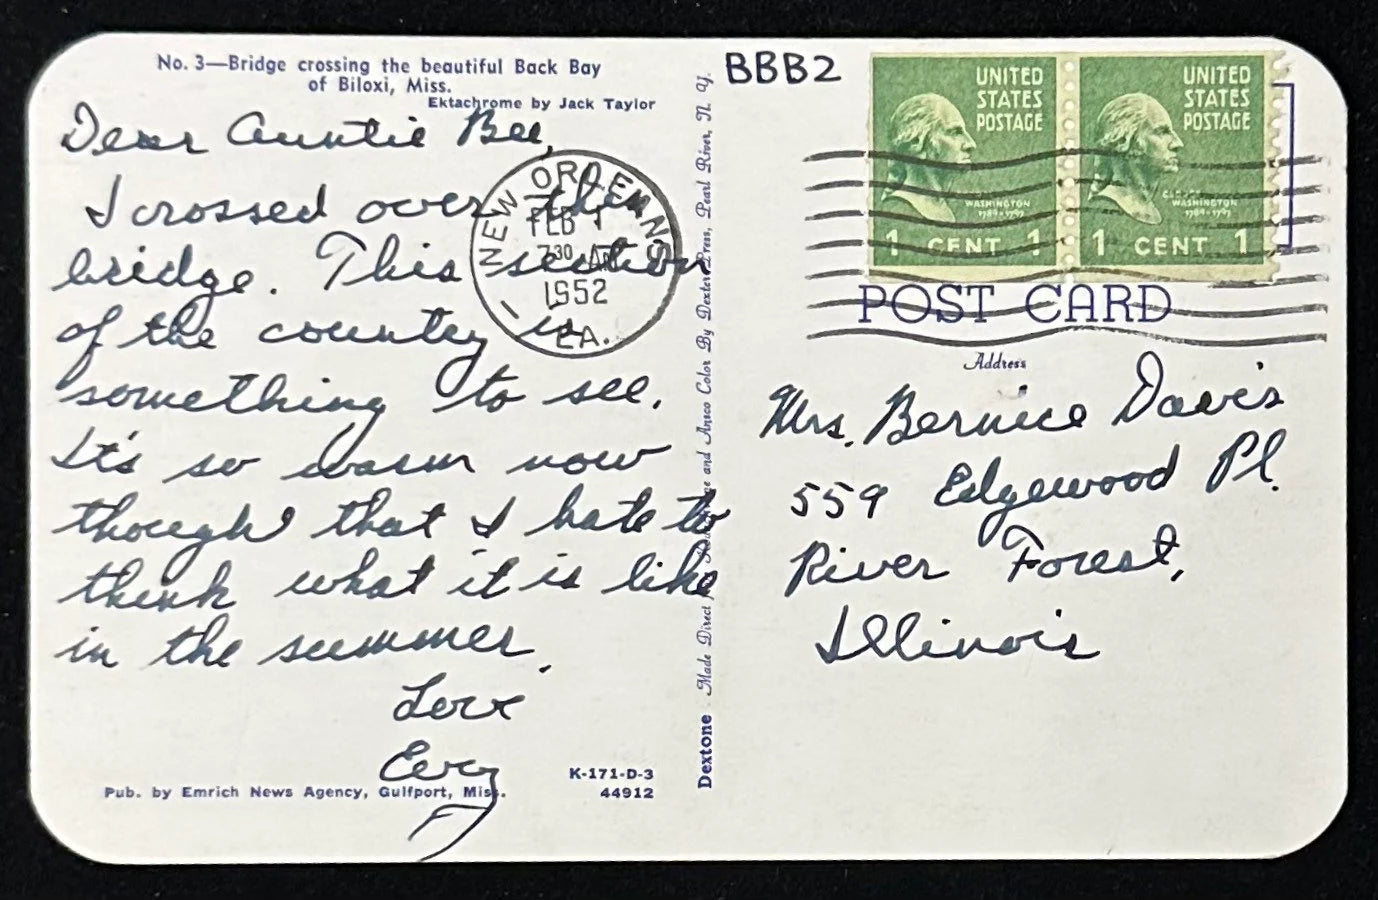 No. 3—Bridge crossing the beautiful Back Bay
of Biloxi, Miss.
Ektachrome by Jack Taylor
Dear Auntie Bee,
I crossed over this
bridge. This section
of the country is
something to see.
It's so warm now
though that I hate to
think what it is like
in the summer.
Love
Evey
Pub. by Emrich News Agency, Gulfport, Miss.
K-171-D-3
44912
NEW ORLEANS
FEB 1
7 30 AM
1952
LA.
Dextone
Made Direct and Ansco Color By Dexter Press, Pearl River, N. Y.
BBB2
UNITED
STATES
POSTAGE
WASHINGTON
1789-1797
1 CENT 1
UNITED
STATES
POSTAGE
GEORGE
WASHINGTON
1789-1797
1 CENT 1
POST CARD
Address
Mrs. Bernice Davis
559 Edgewood Pl.
River Forest,
Illinois